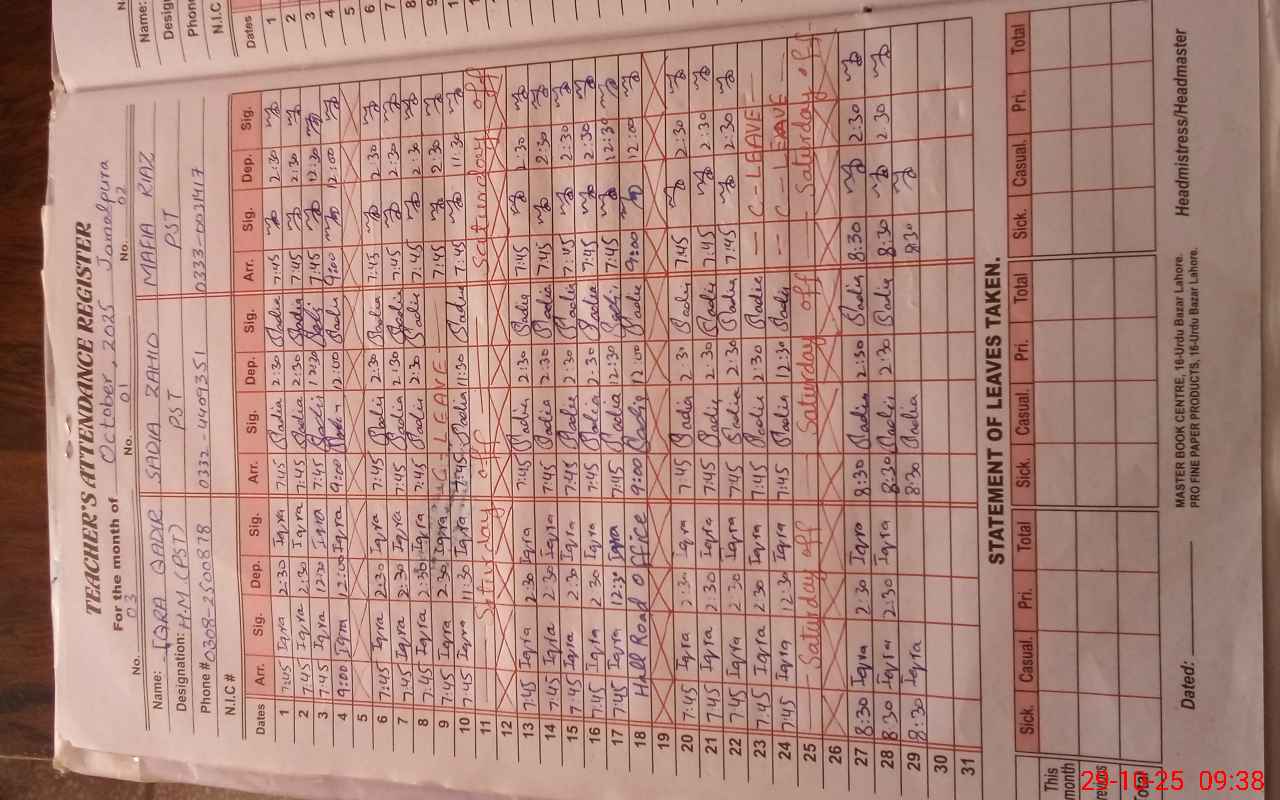 TEACHER'S ATTENDANCE REGISTER
For the month of October, 2025 Jamalpura
No. 03 No. 01 No. 02
Name: IQRA QADIR SADIA ZAHID MAFIA RIAZ
Designation: H.M (PST) PST PST
Phone # 0308-2500878 0332-4409351 0333-0031417
N.I.C #
Dates Arr. Sig. Dep. Sig. Arr. Sig. Dep. Sig. Arr. Sig. Dep. Sig.
1 7:45 Iqra 2:30 Iqra 7:45 Sadia 2:30 Sadia 7:45 2:30
2 7:45 Iqra 2:30 Iqra 7:45 Sadia 2:30 Sadia 7:45 2:30
3 7:45 Iqra 12:30 Iqra 7:45 Sadia 12:30 7:45 12:30
4 9:00 Iqra 12:00 Iqra 9:00 Sadia 12:00 Sadia 9:00 12:00
5
6 7:45 Iqra 2:30 Iqra 7:45 Sadia 2:30 Sadia 7:45 2:30
7 7:45 Iqra 2:30 Iqra 7:45 Sadia 2:30 Sadia 7:45 2:30
8 7:45 Iqra 2:30 Iqra 7:45 Sadia 2:30 Sadia 7:45 2:30
9 7:45 Iqra 2:30 Iqra C-LEAVE 7:45 2:30
10 7:45 Iqra 11:30 Iqra 7:45 Sadia 11:30 Sadia 7:45 11:30
11 Saturday off Saturday off
12
13 7:45 Iqra 2:30 Iqra 7:45 Sadia 2:30 Sadia 7:45 2:30
14 7:45 Iqra 2:30 Iqra 7:45 Sadia 2:30 Sadia 7:45 2:30
15 7:45 Iqra 2:30 Iqra 7:45 Sadia 2:30 Sadia 7:45 2:30
16 7:45 Iqra 2:30 Iqra 7:45 Sadia 2:30 Sadia 7:45 2:30
17 7:45 Iqra 12:30 Iqra 7:45 Sadia 12:30 7:45 12:30
18 Hall Road office 9:00 Sadia 12:00 Sadia 9:00 12:00
19
20 7:45 Iqra 2:30 Iqra 7:45 Sadia 2:30 Sadia 7:45 2:30
21 7:45 Iqra 2:30 Iqra 7:45 Sadia 2:30 Sadia 7:45 2:30
22 7:45 Iqra 2:30 Iqra 7:45 Sadia 2:30 Sadia 7:45 2:30
23 7:45 Iqra 2:30 Iqra 7:45 Sadia 2:30 Sadia — C-LEAVE —
24 7:45 Iqra 12:30 Iqra 7:45 Sadia 12:30 Sadia — C LEAVE —
25 — Saturday off — Saturday off — Saturday off
26
27 8:30 Iqra 2:30 Iqra 8:30 Sadia 2:30 Sadia 8:30 2:30
28 8:30 Iqra 2:30 Iqra 8:30 Sadia 2:30 Sadia 8:30 2:30
29 8:30 Iqra 8:30 Sadia 8:30
30
31
STATEMENT OF LEAVES TAKEN.
Sick. Casual. Pri. Total Sick. Casual. Pri. Total Sick. Casual. Pri. Total
This month
Total
Dated:
MASTER BOOK CENTRE, 16-Urdu Bazar Lahore.
PRO FINE PAPER PRODUCTS, 16-Urdu Bazar Lahore.
Headmistress/Headmaster
Name:
Phone
N.I.C
Dates
1
2
3
4
5
6
7
8
29-10-25 09:38